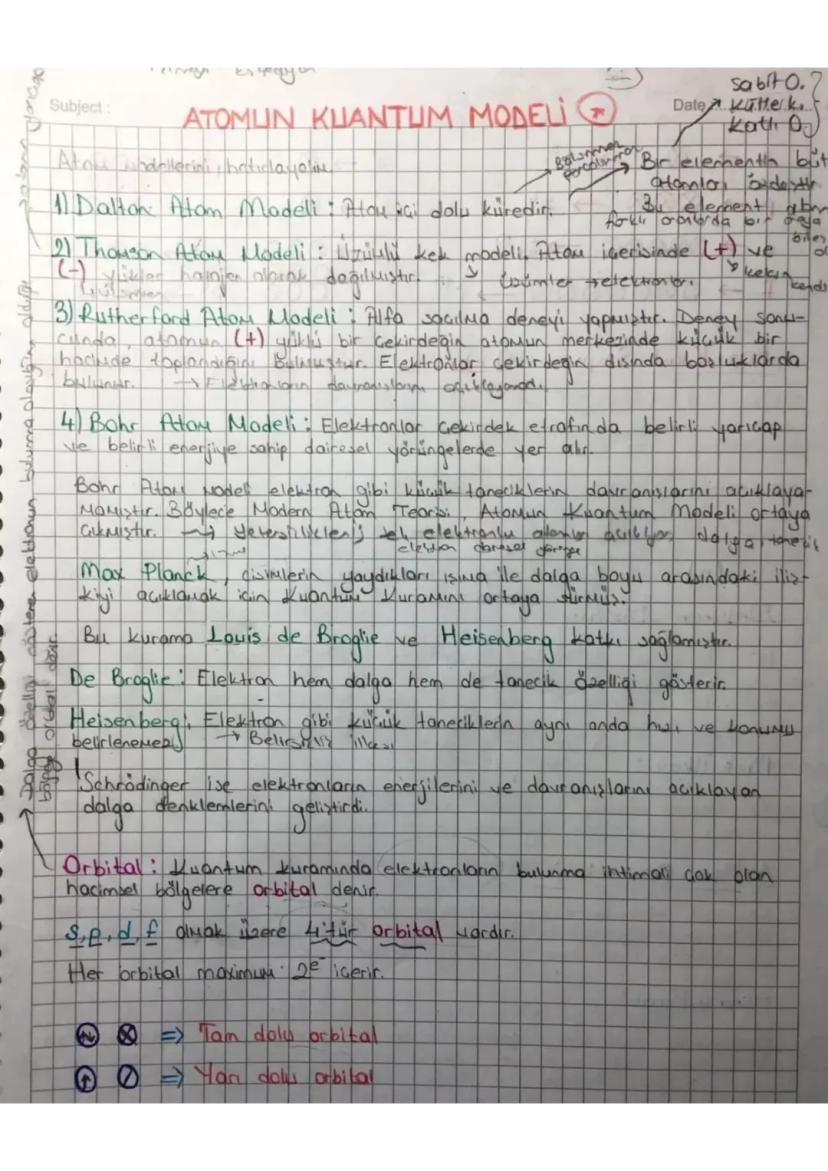 sabit O.
Subject :
ATOMUN KUANTUM MODELİ
Date
Kütle k.
Katlı O.
Atom modellerini hatırlayalım
Bölünmez
parçalanmaz
Bir elementin büt
atomları özdeştir
1) Dalton Atom Modeli : Atom içi dolu küredir.
2) Thomson Atom Modeli : Üzümlü kek modeli. Atom içerisinde (+) ve
(-) yükler homojen olarak dağılmıştır.
üzümler → elektronlar.
kekin
kendi
3) Rutherford Atom Modeli : Alfa saçılma deneyi yapmıştır. Deney sonu-
cunda, atomun (+) yüklü bir çekirdeğin atomun merkezinde küçük bir
hacimde toplandığını bulmuştur. Elektronlar çekirdeğin dışında boşluklarda
bulunur. → Elektronların davranışlarını açıklayamadı.
4) Bohr Atom Modeli : Elektronlar çekirdek etrafında belirli yarıçap
ve belirli enerjiye sahip dairesel yörüngelerde yer alır.
Bohr Atom model elektron gibi küçük taneciklerin davranışlarını açıklaya-
mamıştır. Böylece Modern Atom Teorisi, Atomun Kuantum Modeli ortaya
çıkmıştır. → tek elektronlu
elektron dairesel
dalga, tanecik
Max Planck, cisimlerin yaydıkları ışıma ile dalga boyu arasındaki iliş-
kiyi açıklamak için Kuantum Kuramını ortaya sürmüş.
Bu kurama Louis de Broglie ve Heisenberg katkı sağlamıştır.
De Broglie : Elektron hem dalga hem de tanecik özelliği gösterir.
Heisenberg : Elektron gibi küçük taneciklerin aynı anda hızı ve konumu
belirlenemez → Belirsizlik ilkesi
Schrödinger ise elektronların enerjilerini ve davranışlarını açıklayan
dalga denklemlerini geliştirdi.
Orbital : Kuantum kuramında elektronların bulunma ihtimali çok olan
hacimsel bölgelere orbital denir.
s, p, d, f olmak üzere 4 tür orbital vardır.
Her orbital maximum 2e⁻ içerir.
⇒ Tam dolu orbital
⇒ Yarı dolu orbital